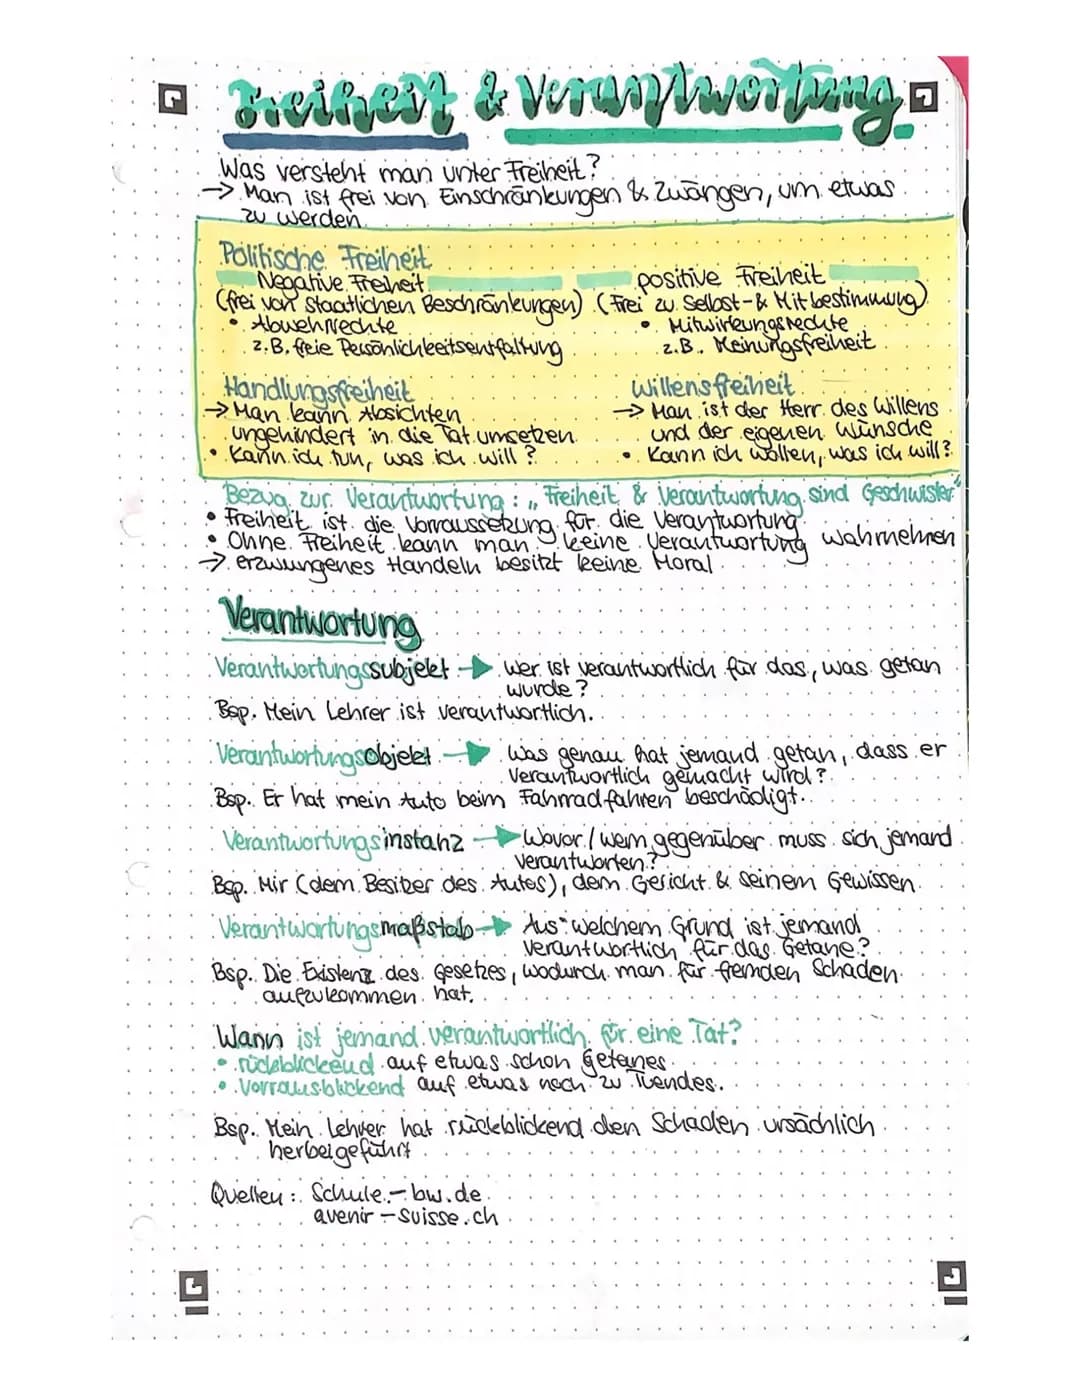 Freiheit & Verantwortung
Was versteht man unter Freiheit?
→ Man ist frei von Einschränkungen & Zwängen, um etwas
zu werden.
Politische Freiheit
Negative Freiheit
positive Freiheit
(frei von staatlichen Beschränkungen)
(Frei zu Selbst-& Mitbestimmung)
• Abwehrrechte
• Mitwirkungsrechte
z.B. freie Persönlichkeitsentfaltung
z.B. Meinungsfreiheit
Handlungsfreiheit
→ Man kann Absichten
ungehindert in die Tat umsetzen
• Kann ich tun, was ich will?
Willensfreiheit
→ Man ist der Herr des Willens
und der eigenen Wünsche
• Kann ich wollen, was ich will?
Bezug zur Verantwortung: „Freiheit & Verantwortung sind Geschwister"
• Freiheit ist die Vorraussetzung für die Verantwortung
• Ohne Freiheit kann man keine Verantwortung wahrnehmen
→ erzwungenes Handeln besitzt keine Moral
Verantwortung
Verantwortungssubjekt → wer ist verantwortlich für das, was getan
wurde?
Bsp. Mein Lehrer ist verantwortlich.
Verantwortungsobjekt → Was genau hat jemand getan, dass er
verantwortlich gemacht wird?
Bsp. Er hat mein Auto beim Fahrradfahren beschädigt.
Verantwortungsinstanz → Wovor/wem gegenüber muss sich jemand
verantworten?
Bsp. Mir (dem Besitzer des Autos), dem Gericht & seinem Gewissen.
Verantwortungsmaßstab → Aus welchem Grund ist jemand
verantwortlich für das Getane?
Bsp. Die Existenz des Gesetzes, wodurch man für fremden Schaden
aufzukommen hat.
Wann ist jemand verantwortlich für eine Tat?
• rückblickend auf etwas schon Getanes
• Vorrausblickend auf etwas noch zu Tuendes.
Bsp. Mein Lehrer hat rückblickend den Schaden ursächlich
herbeigeführt
Quellen: Schule-bw.de
avenir-suisse.ch